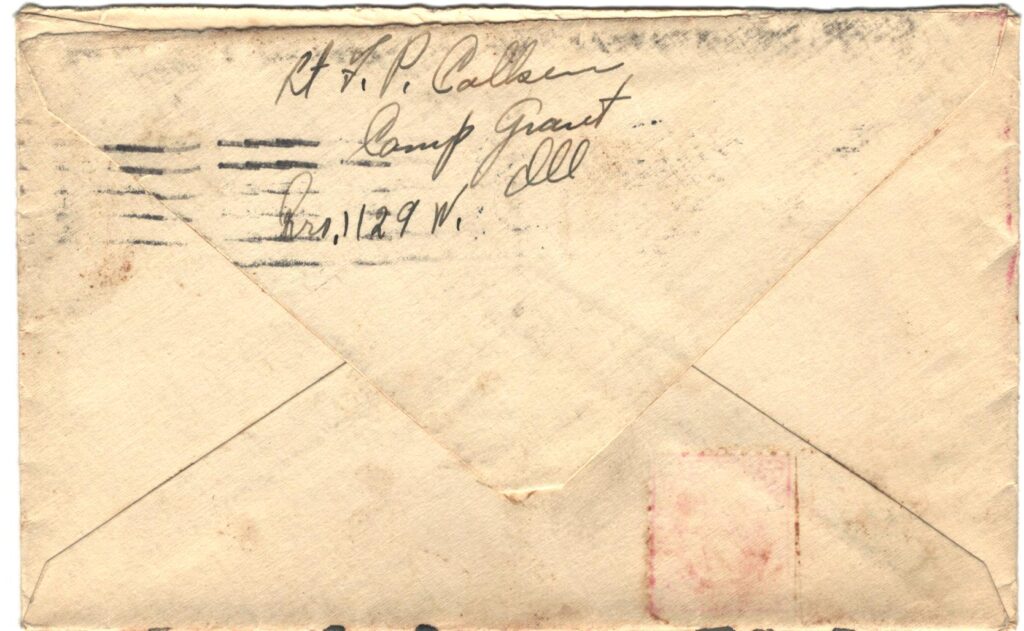 Lt F. P. Callsen
Camp Grant
Ill
Brs. 1129 W.